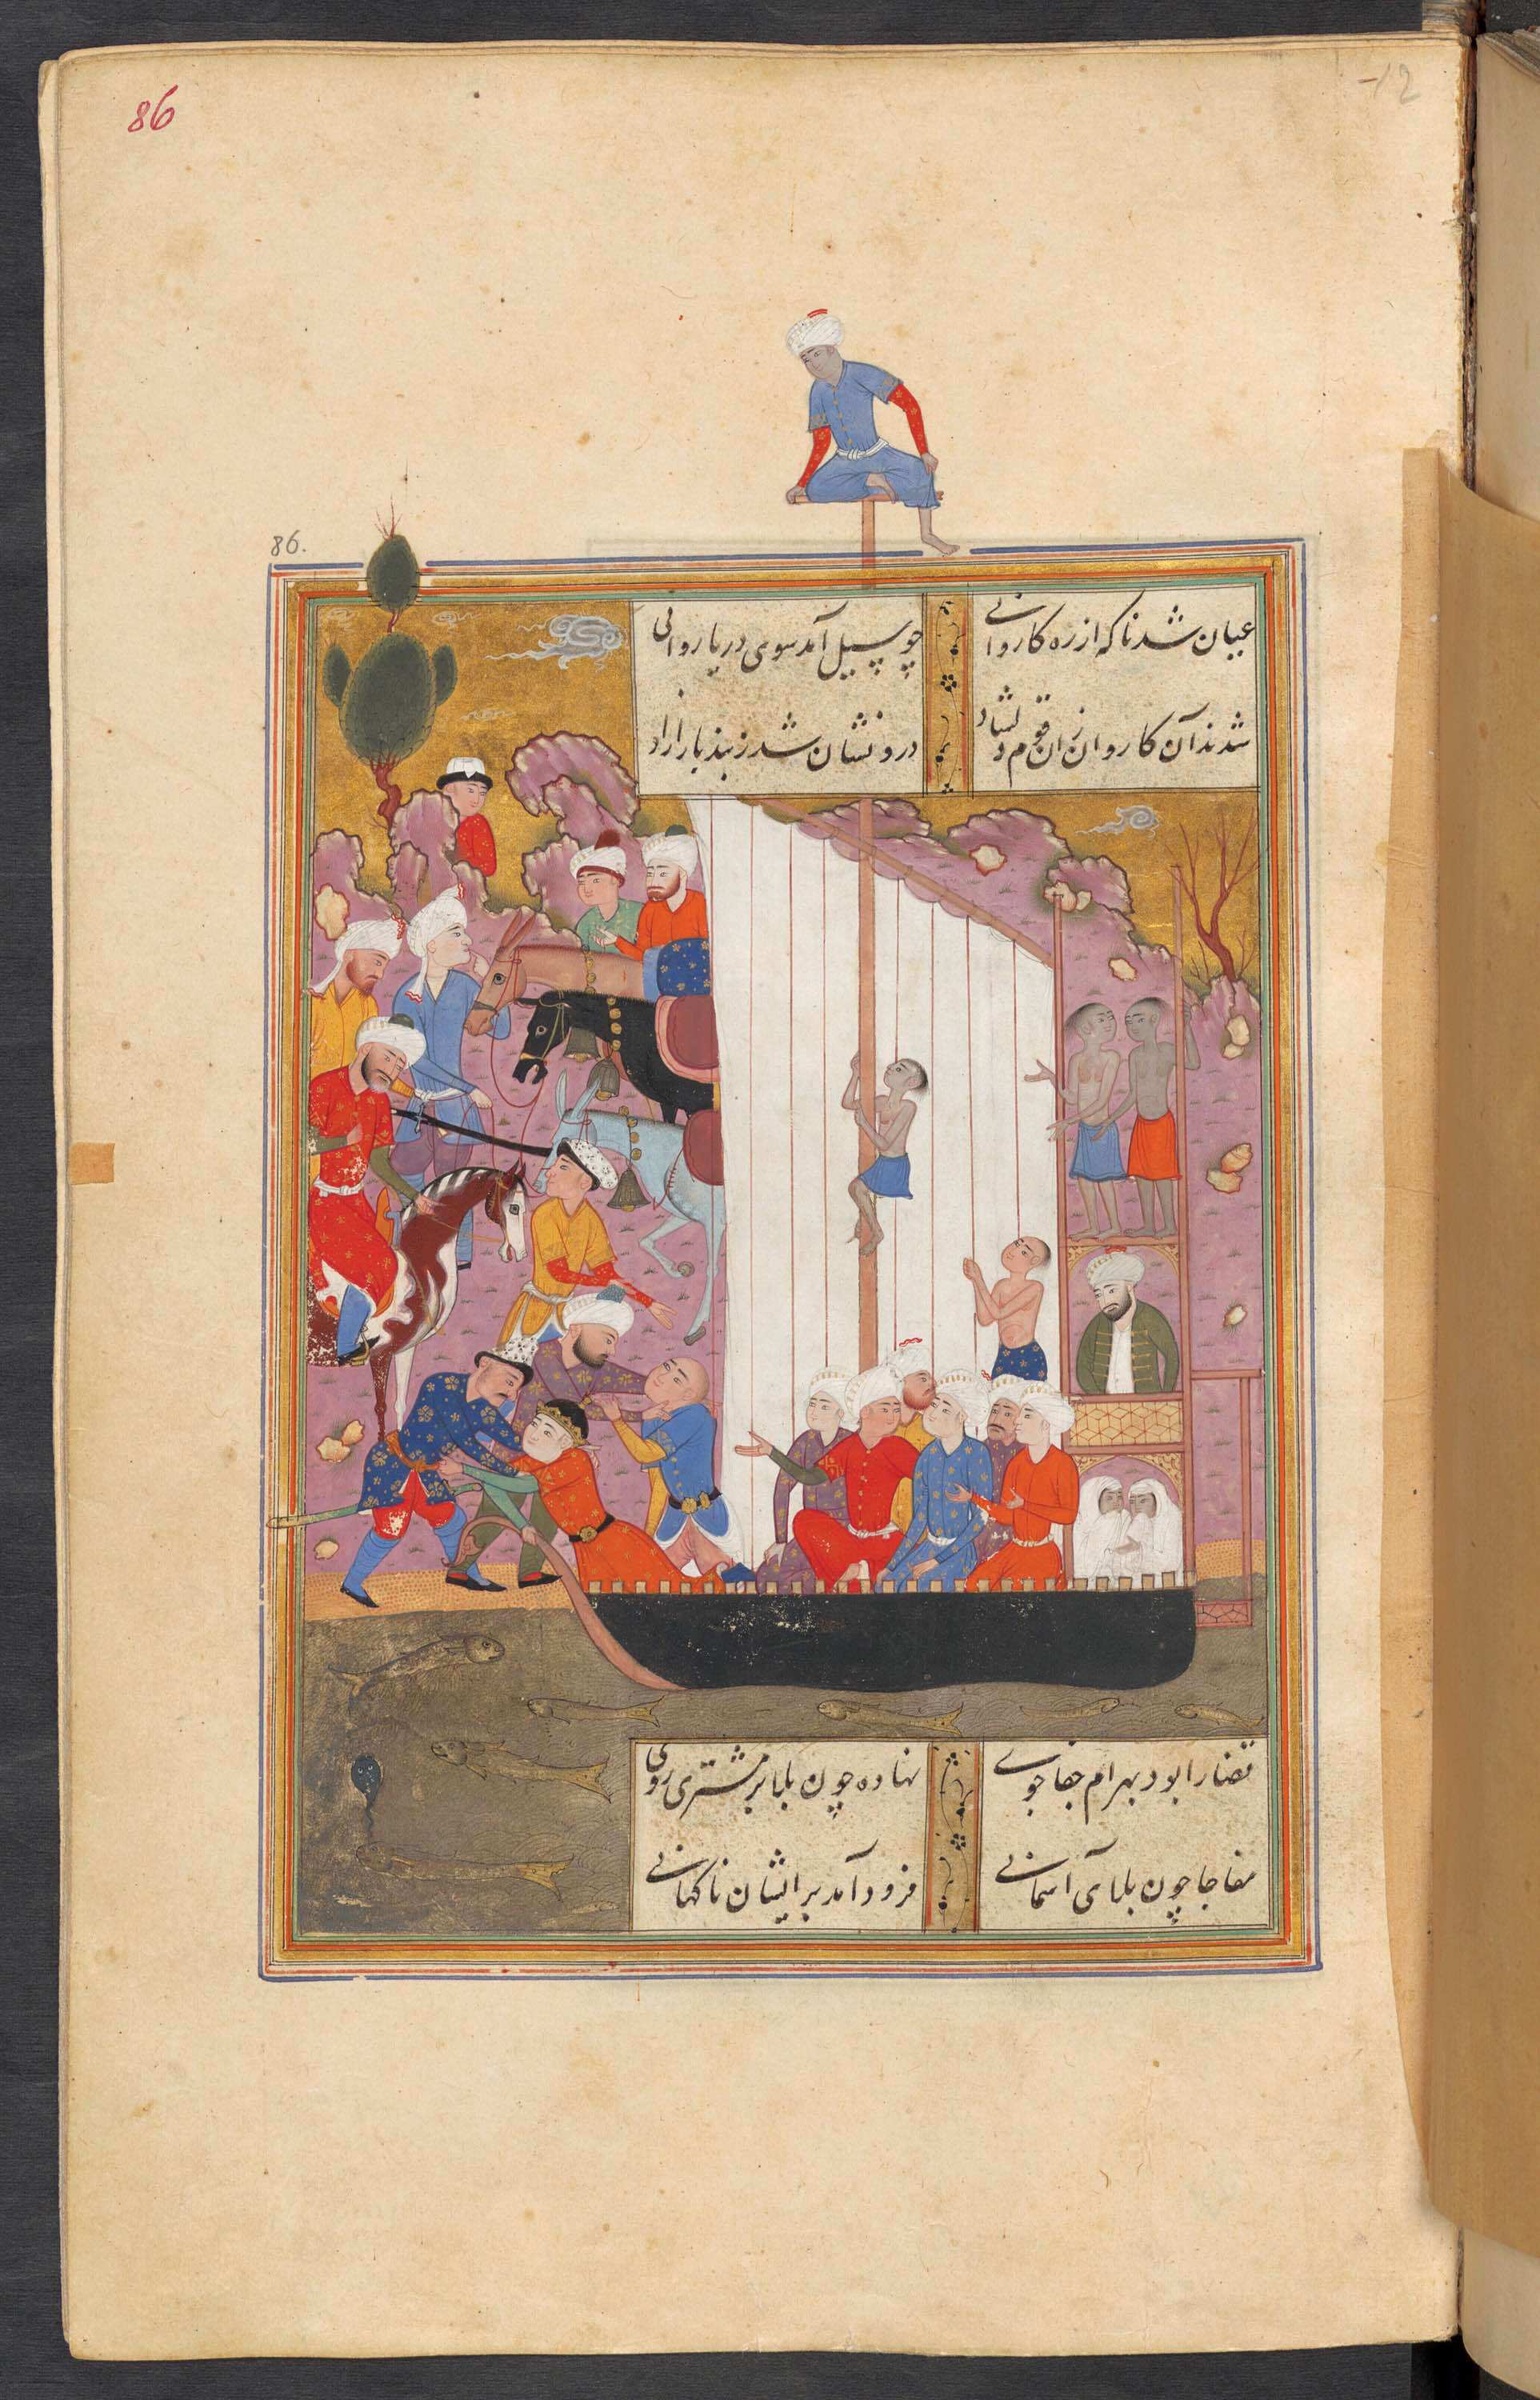 86
-12
86.
عیان شد ناکه از ره کاروانی
چو سیل آمد سوی دریا روانی
شدند آن کاروان زان قوم دلشاد
درونشان شد ز بند بار ازاد
قضا را بود بهرام جفا جوی
نهاده چون بلا بر مشتری روی
مفاجا چون بلای آسمانی
فرود آمد بر ایشان ناکهانی